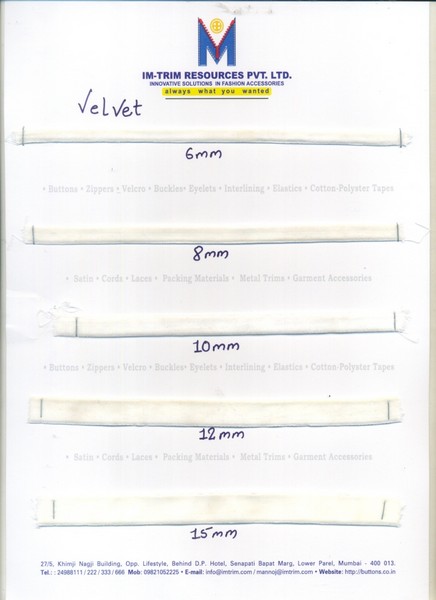 M
IM-TRIM RESOURCES PVT. LTD.
INNOVATIVE SOLUTIONS IN FASHION ACCESSORIES
always what you wanted
Velvet
6mm
• Buttons • Zippers • Velcro • Buckles• Eyelets • Interlining • Elastics • Cotton-Polyster Tapes
8mm
• Satin • Cords • Laces • Packing Materials • Metal Trims • Garment Accessories
10mm
• Buttons • Zippers • Velcro • Buckles• Eyelets • Interlining • Elastics • Cotton-Polyster Tapes
12mm
• Satin • Cords • Laces • Packing Materials • Metal Trims • Garment Accessories
15mm
27/5, Khimji Nagji Building, Opp. Lifestyle, Behind D.P. Hotel, Senapati Bapat Marg, Lower Parel, Mumbai - 400 013.
Tel.: : 24988111 / 222 / 333 / 666 Mob: 09821052225 • E-mail: info@imtrim.com / mannoj@imtrim.com • Website: http://buttons.co.in